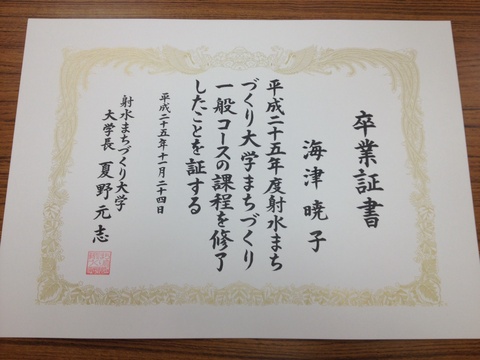 卒業証書
海津暁子
平成二十五年度射水まち
づくり大学まちづくり
一般コースの課程を修了
したことを証する
平成二十五年十一月二十四日
射水まちづくり大学
大学長 夏野元志